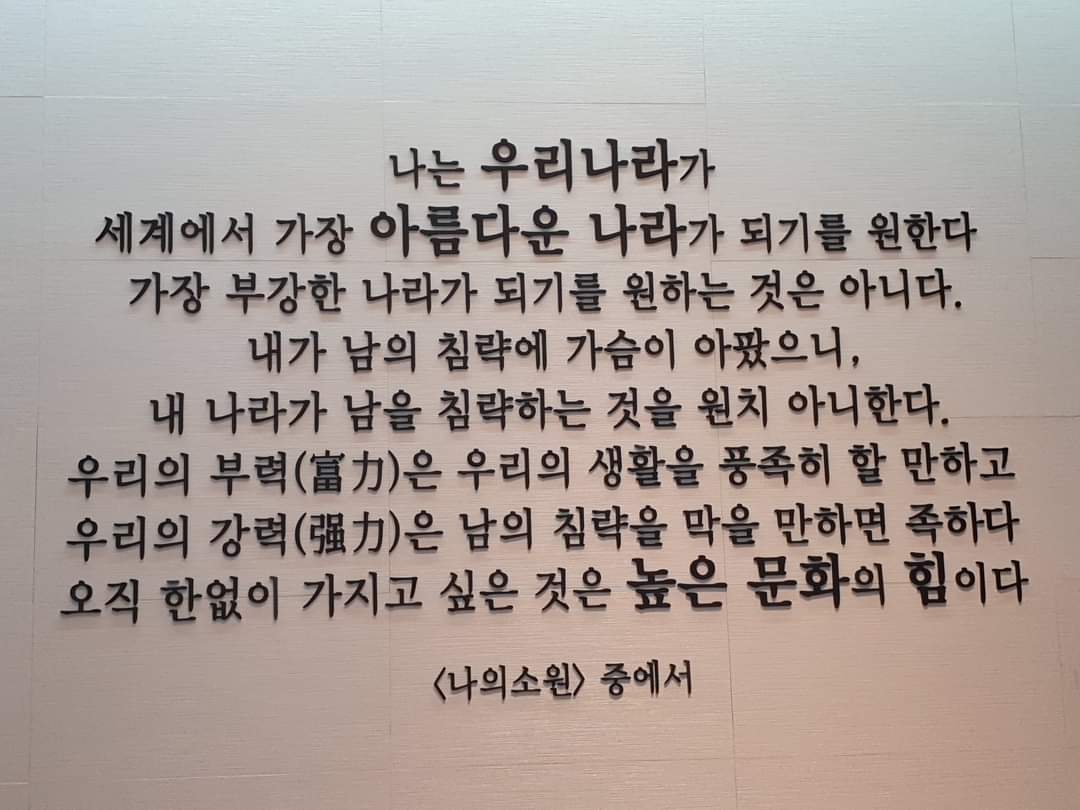 나는 우리나라가
세계에서 가장 아름다운 나라가 되기를 원한다
가장 부강한 나라가 되기를 원하는 것은 아니다.
내가 남의 침략에 가슴이 아팠으니,
내 나라가 남을 침략하는 것을 원치 아니한다.
우리의 부력(富力)은 우리의 생활을 풍족히 할 만하고
우리의 강력(强力)은 남의 침략을 막을 만하면 족하다
오직 한없이 가지고 싶은 것은 높은 문화의 힘이다
<나의소원> 중에서